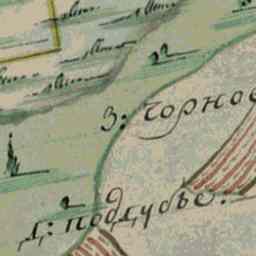 З: Чорное
Д: Поддубье: